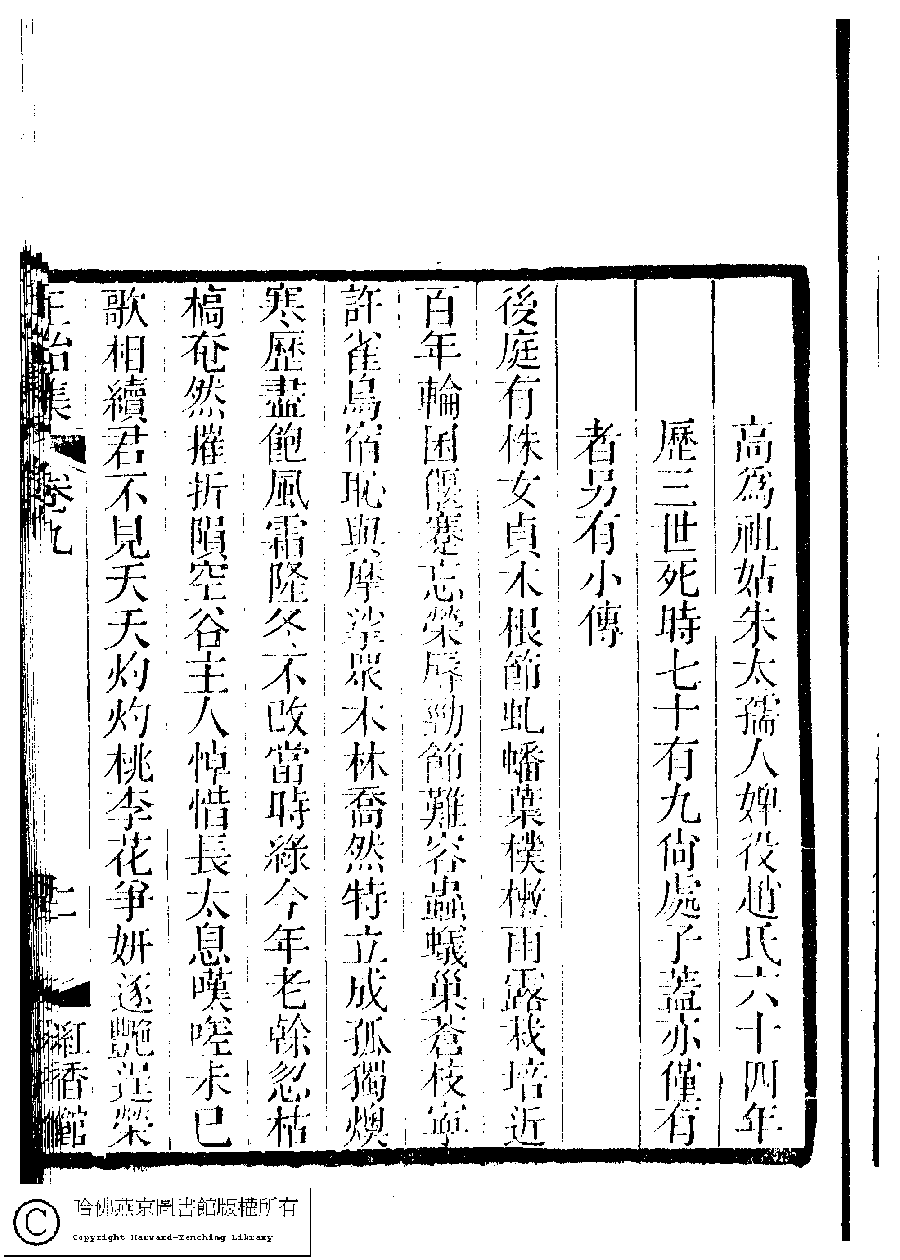 高為祖姑朱太孺人婢役趙氏六十四年
歷三世死時七十有九尙處子蓋亦僅有
者另有小傳
後庭有株女貞木根節虬蟠葉樸樕雨露栽培近
百年輪囷偃蹇忘榮辱勁節難容蟲蟻巢蒼枝寧
許雀鳥宿恥與摩挲眾木林喬然特立成孤獨燠
寒歷盡飽風霜隆冬不改當時綠今年老榦忽枯
槁奄然摧折隕空谷主人悼惜長太息嘆嗟未已
歌相續君不見夭夭灼灼桃李花爭妍逐艷逞榮
正始集 卷九 十一 紅香館
哈佛燕京圖書館版權所有
Copyright Harvard-Yenching Library